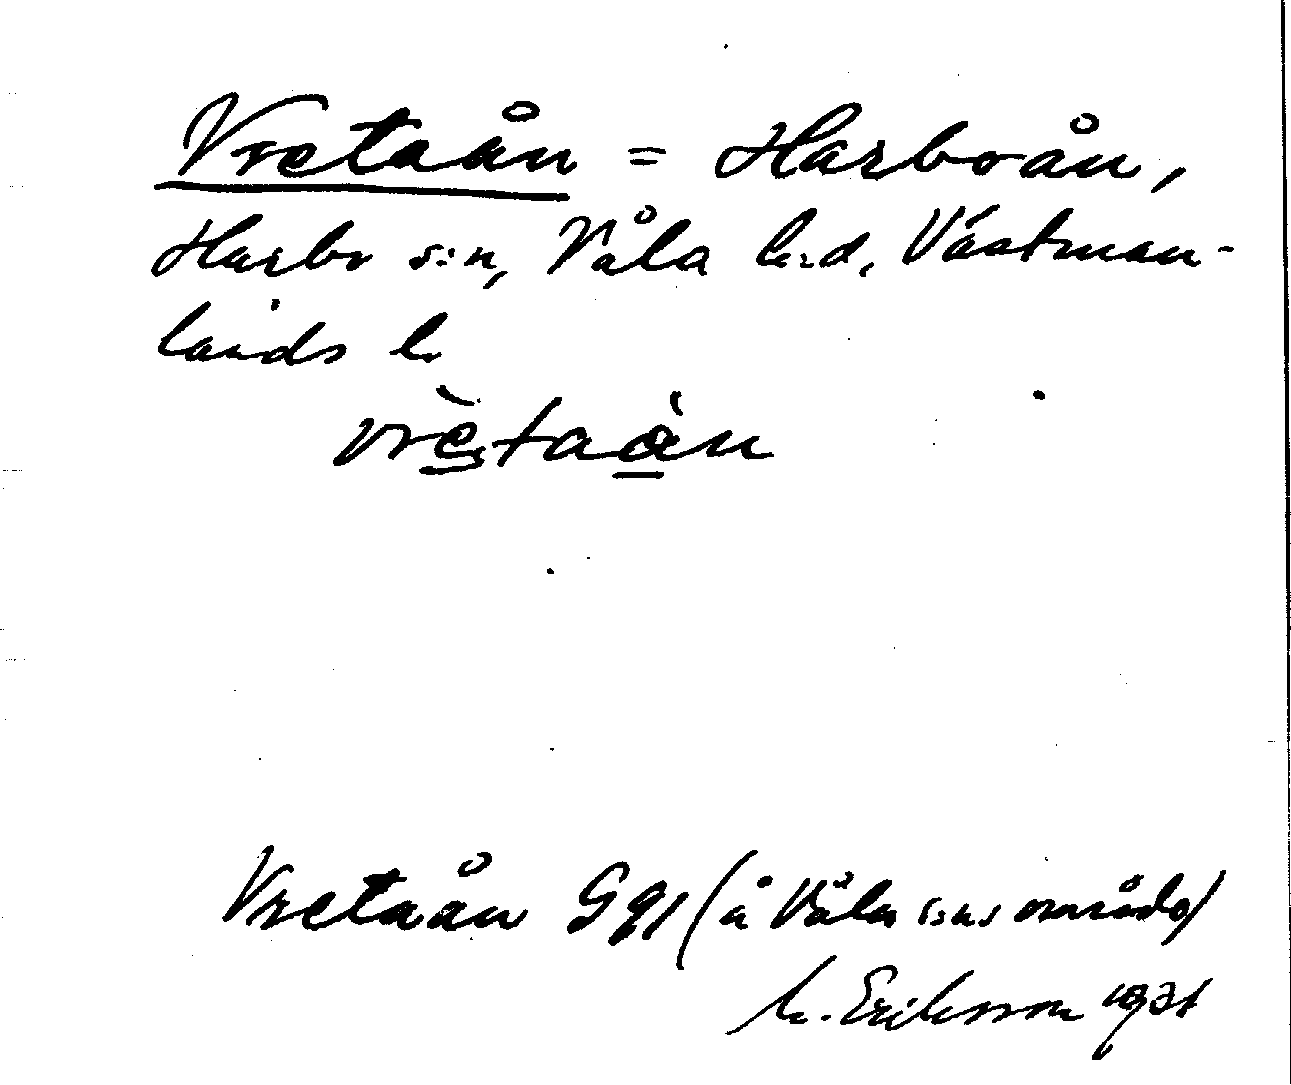 Vretaån = Harboån,
Harbo s:n, Våla h:d, Västman-
lands l.
vrètaàn
Vretaån Ggl (å Våla s:ns område)
M. Eriksson 1931